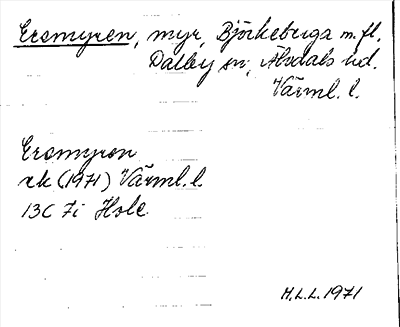 Ersmyren, myr, Björkebruga m.fl.
Dalby sn, Älvdals hd.
Värml. l.
Ersmyren
rk (1971) Värml. l.
13C 7i Hole
H.L.L. 1971